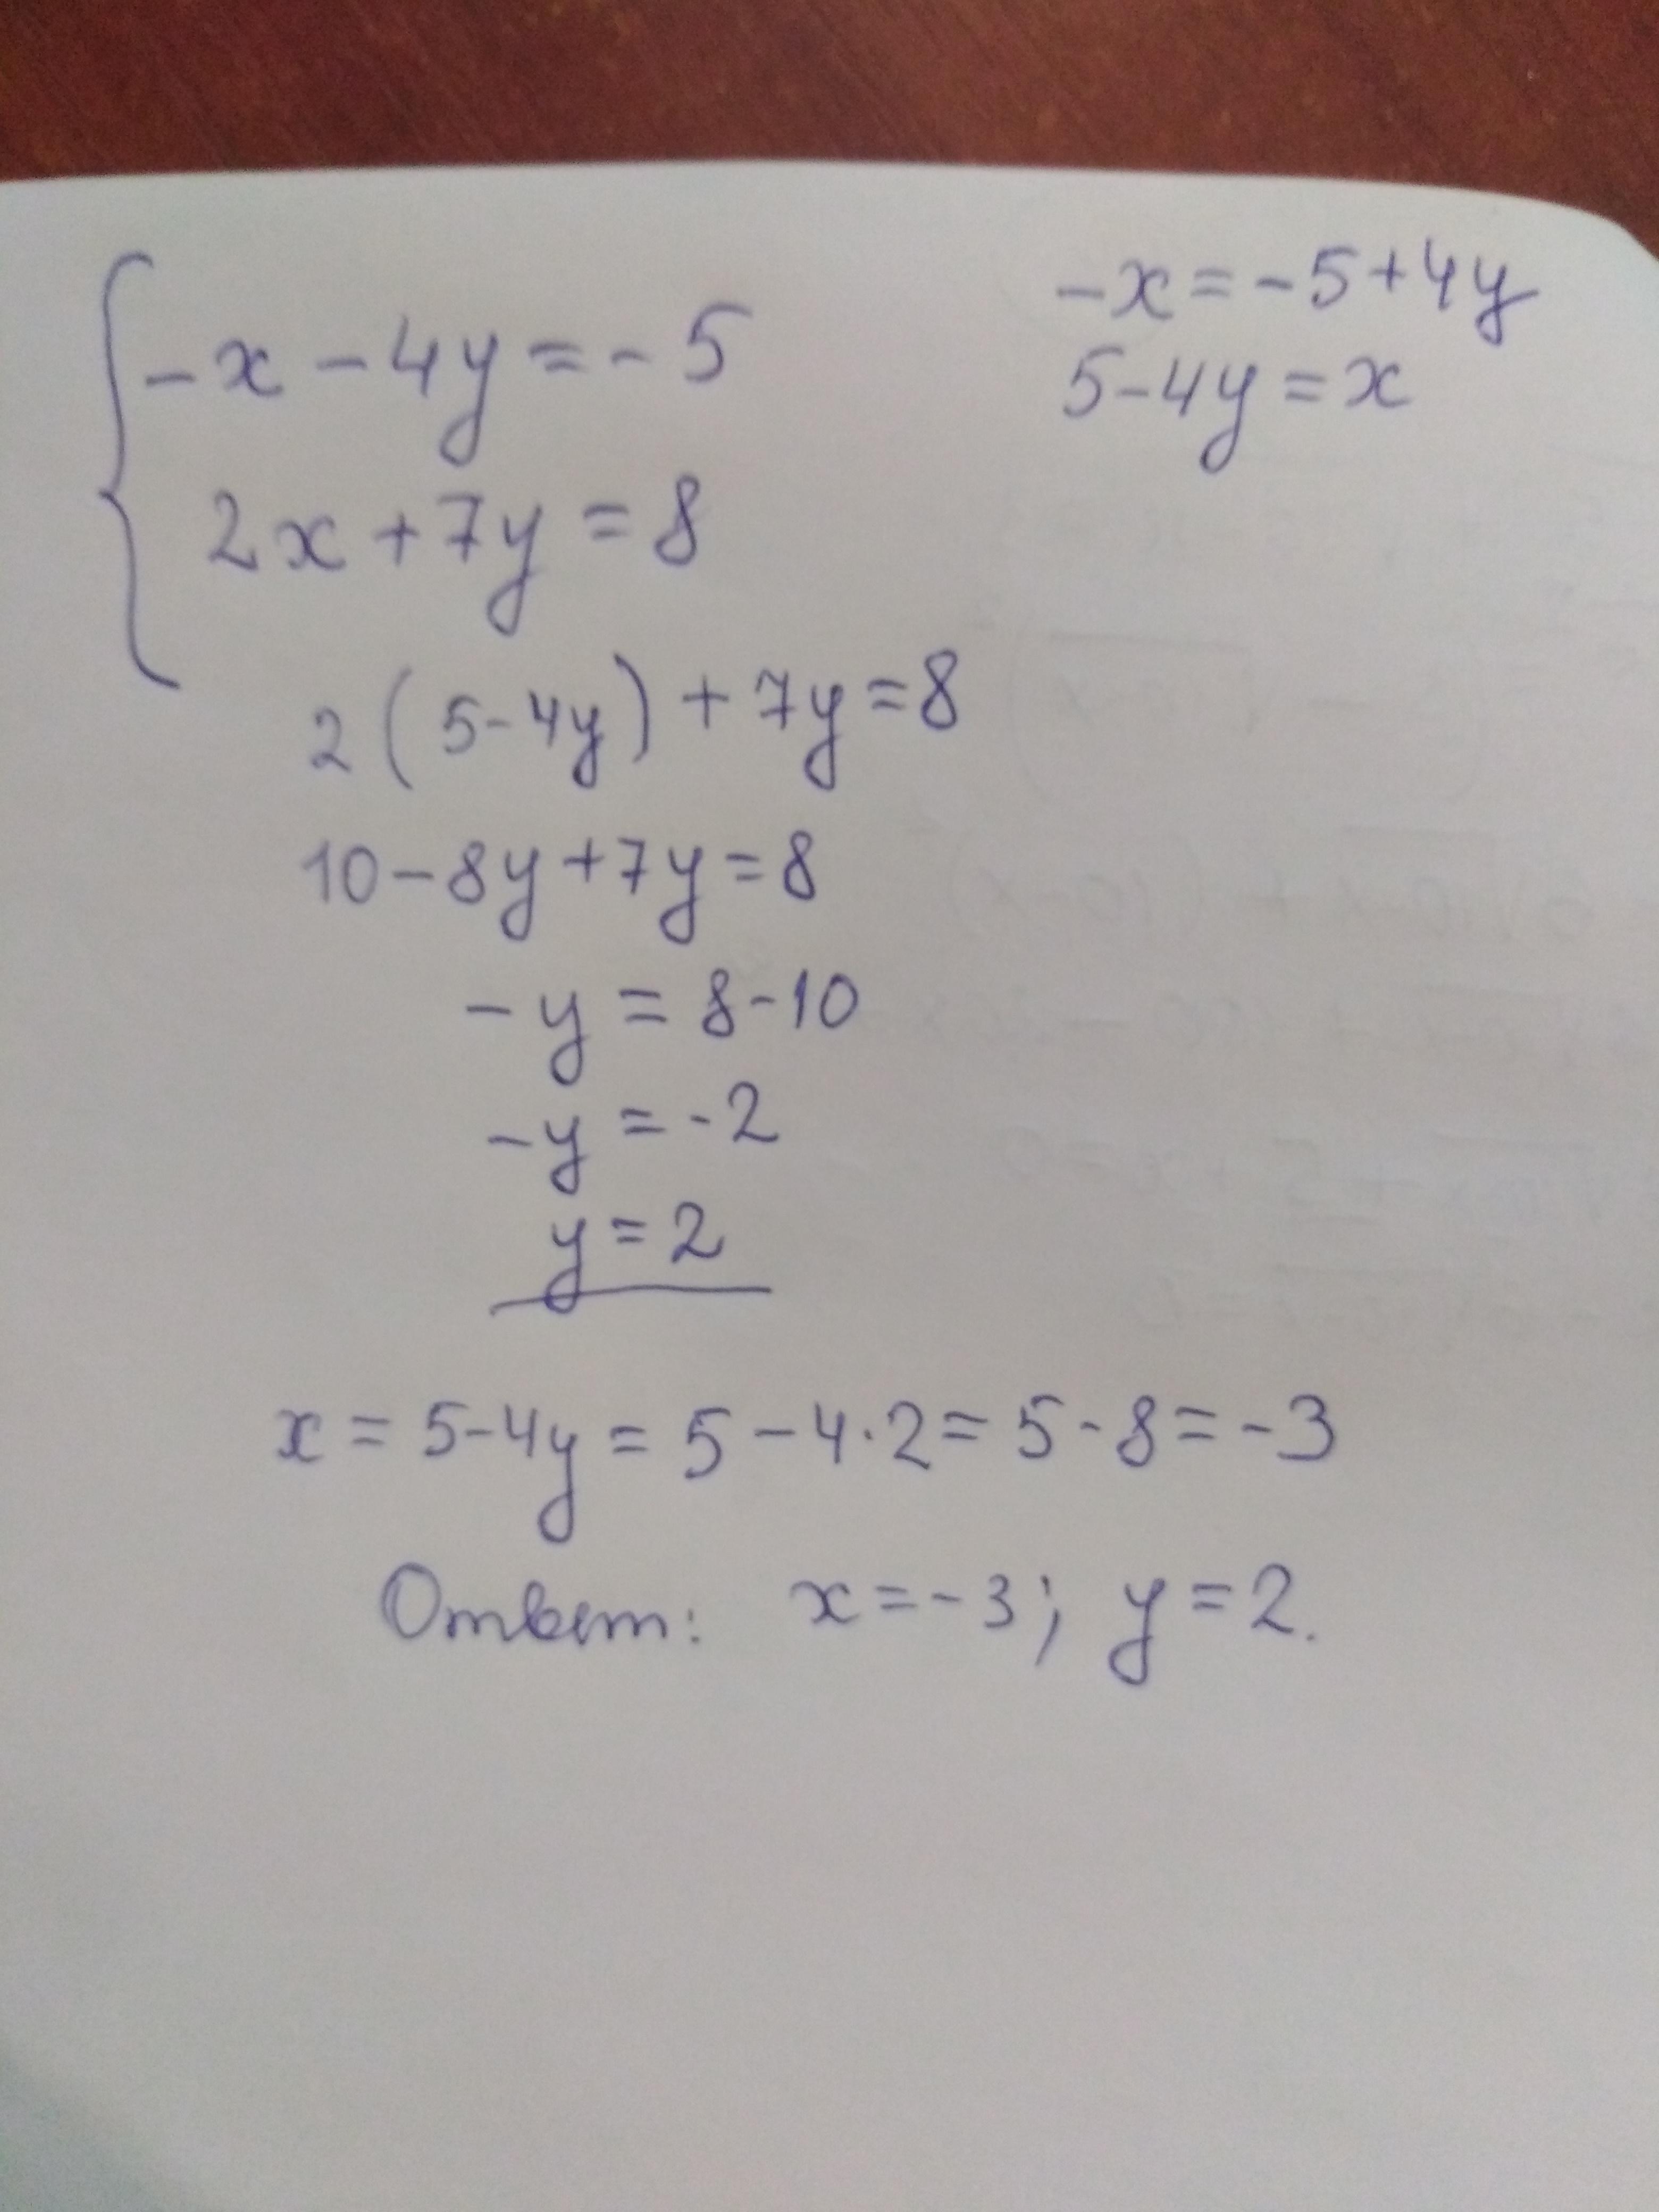 -x - 4y = -5
2x + 7y = 8
-x = -5 + 4y
5 - 4y = x
2(5 - 4y) + 7y = 8
10 - 8y + 7y = 8
-y = 8 - 10
-y = -2
y = 2
x = 5 - 4y = 5 - 4·2 = 5 - 8 = -3
Ответ: x = -3; y = 2.